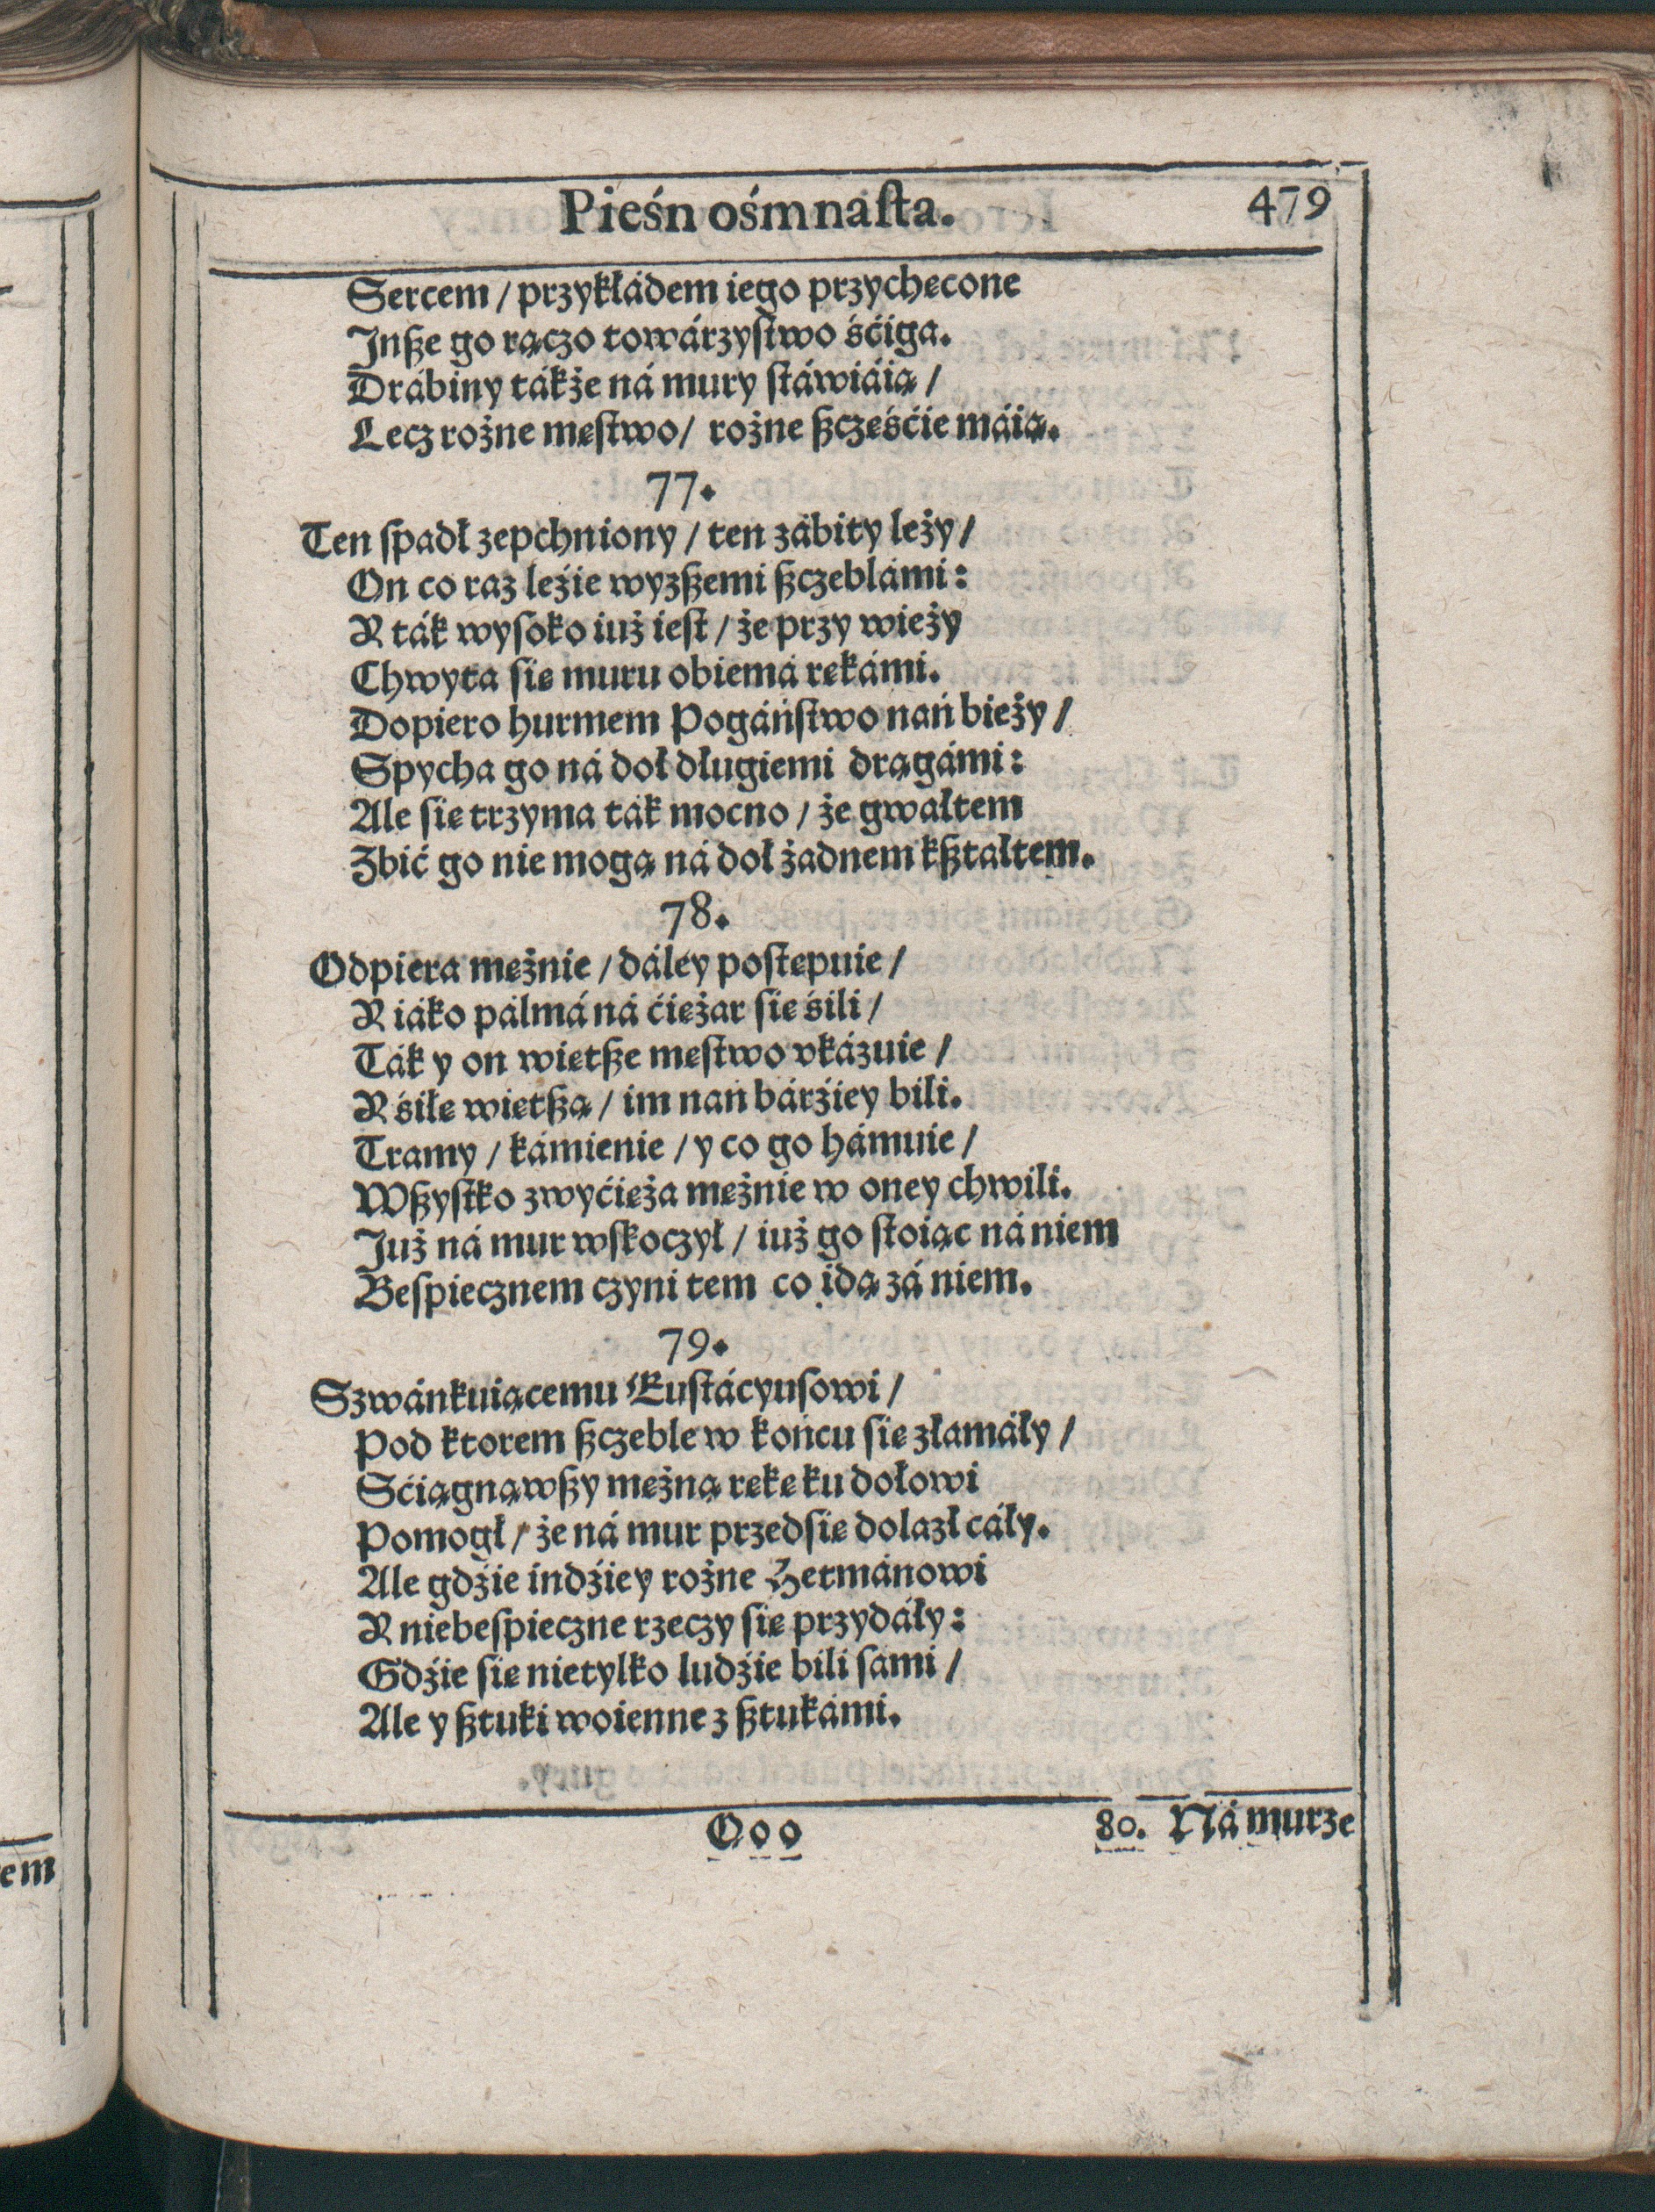 Pieśń ośmnaſta.
479
Sercem / przykłádem iego przychęcone
Jnße go rączo towárzyſtwo śćiga.
Drábiny tákże ná mury ſtáwiáią /
Lecz rożne męſtwo / rożne ßczęśćie máią.
77.
Ten ſpadł zepchniony / ten zábity leży /
On co raz leźie wyzßemi ßczeblámi:
Y ták wyſoko iuż ieſt / że przy wieży
Chwyta ſię muru obiemá rękámi.
Dopiero hurmem Pogáńſtwo nań bieży /
Spycha go ná doł długiemi drągámi:
Ale ſię trzyma ták mocno / że gwałtem
Zbić go nie mogą ná doł żadnem kßtałtem.
78.
Odpiera mężnie / dáley poſtępuie /
Y iáko pálmá ná ćiężar ſię śili /
Ták y on więtße męſtwo vkázuie /
Y śiłę więtßą / im nań bárźiey bili.
Tramy / kámienie / y co go hámuie /
Wßyſtko zwyćięża mężnie w oney chwili.
Już ná mur wſkoczył / iuż go ſtoiąc ná niem
Beſpiecznem czyni tem co idą zá niem.
79.
Szwánkuiącemu Euſtácyuſowi /
Pod ktorem ßczeble w końcu ſię złamáły /
Sćiągnąwßy mężną rękę ku dołowi
Pomogł / że ná mur przedſię dolazł cáły.
Ale gdźie indźiey rożne Hetmánowi
Y niebeſpieczne rzeczy ſię przydáły:
Gdźie ſię nietylko ludźie bili ſami /
Ale y ßtuki woienne z ßtukámi.
Ooo
80. Ná murze
em